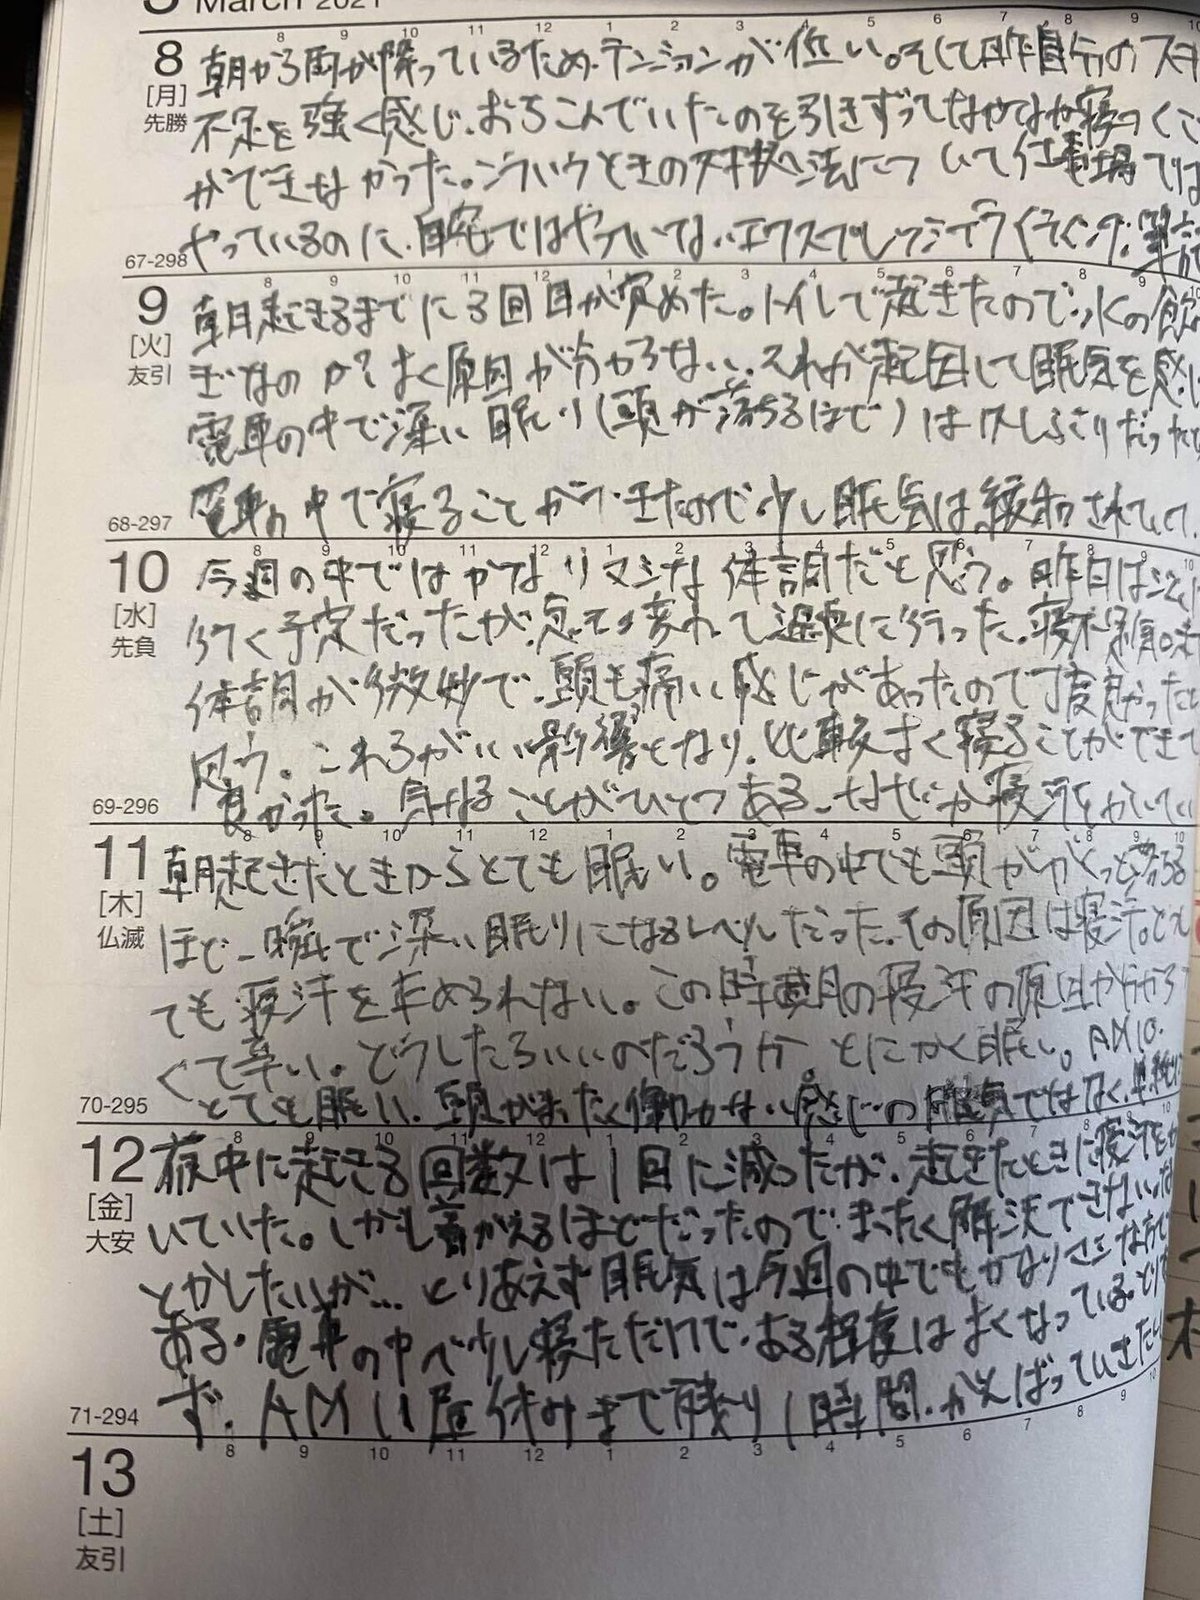 March 2021
8 9 10 11 12 1 2 3 4 5 6 7 8 9 10
8
[月]
先勝
67-298
朝から雨が降っているため、テンションが低い。そして昨日自分のスキ
不足を強く感じ、おちこんでいたのを引きずってなかなか寝つくこ
ができなかった。こういうときの対処法について仕事場では
やっているのに、自宅ではやっていないエクスプレッシブライティング。
8 9 10 11 12 1 2 3 4 5 6 7 8 9 10
9
[火]
友引
68-297
朝起きるまでに3回目が覚めた。トイレで起きたので、水の飲み
ぎなのか？よく原因が分からない。それが起因して眠気を感じ
電車の中で深い眠り（頭が落ちるほど）は久しぶりだった
電車の中で寝ることができたので少し眠気は緩和されていて
8 9 10 11 12 1 2 3 4 5 6 7 8 9 10
10
[水]
先負
69-296
今週の中ではかなりマシな体調だと思う。昨日はジムに
行く予定だったが、急きょ変わって温泉に行った。寝不足気味
体調が微妙で、頭も痛い感じがあったので丁度良かったと
思う。これらがいい影響となり、比較的よく寝ることができて
良かった。気になることがひとつある。なぜか寝汗をかいてい
8 9 10 11 12 1 2 3 4 5 6 7 8 9 10
11
[木]
仏滅
70-295
朝起きたときからとても眠い。電車の中でも頭ががくっと落ちる
ほど一瞬で深い眠りになるレベルだった。その原因は寝汗。とて
ても寝汗を止められない。この時期の寝汗の原因が分から
くて辛い。どうしたらいいのだろうか。とにかく眠い。AM10.
とても眠い。頭がまったく働かない感じの眠気ではなく、
8 9 10 11 12 1 2 3 4 5 6 7 8 9 10
12
[金]
大安
71-294
夜中に起きる回数は1回に減ったが、起きたときに寝汗をか
いていた。しかも着がえるほどだったので、まったく解決できない。な
とかしたいが… とりあえず眠気は今週の中でもかなりマシな方で
ある。電車の中で少し寝ただけで、ある程度はよくなっている。とりあ
ず、AM11 昼休みまで残り1時間、がんばっていきたい
8 9 10 11 12 1 2 3 4 5 6 7 8 9 10
13
[土]
友引